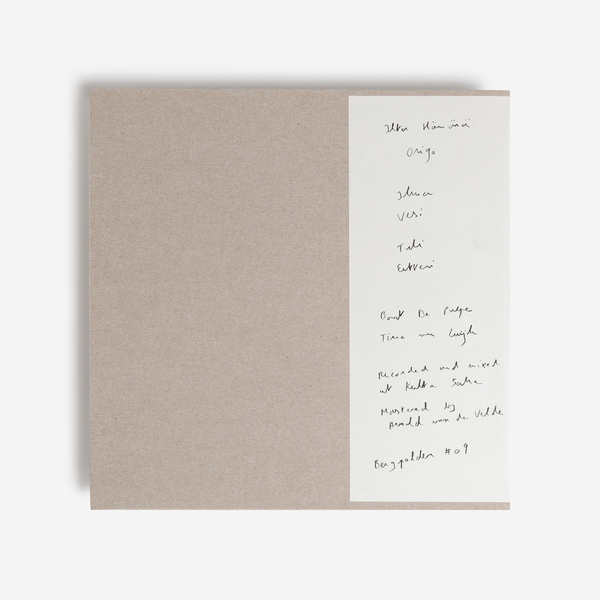 Ilta Hämärä
Origo
Ilma
Vesi
Tuli
Eetteri
Bart De Paepe
Timo van Luijk
Recorded and mixed
at Kulta Saha
Mastered by
van de Velde
Bergpolder #09